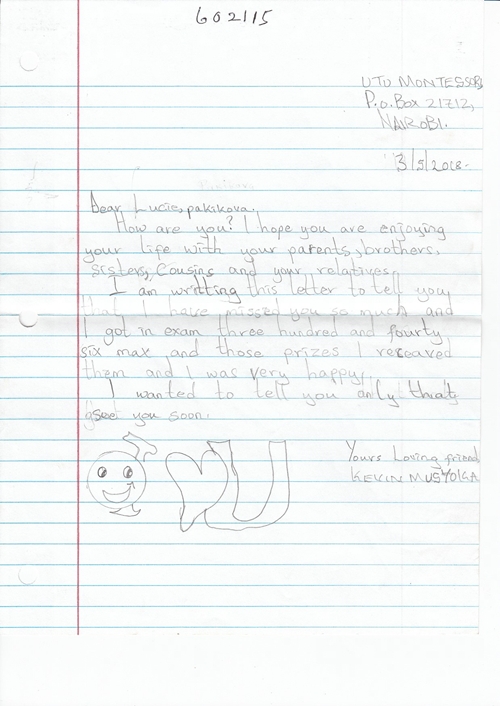 602115
UTU MONTESSORI
P.o.Box 21712,
NAIROBI.
3/5/2018.
Dear Lucie, pakikova.
How are you? I hope you are enjoying
your life with your parents, brothers,
sisters, Cousins and your relatives.
I am writting this letter to tell you
that I have missed you so much and
I got in exam three hundred and fourty
six max and those prizes I receaved
them and I was very happy.
I wanted to tell you only that
see you soon.
U
Yours Loving friend
KEVIN MUSYOKA